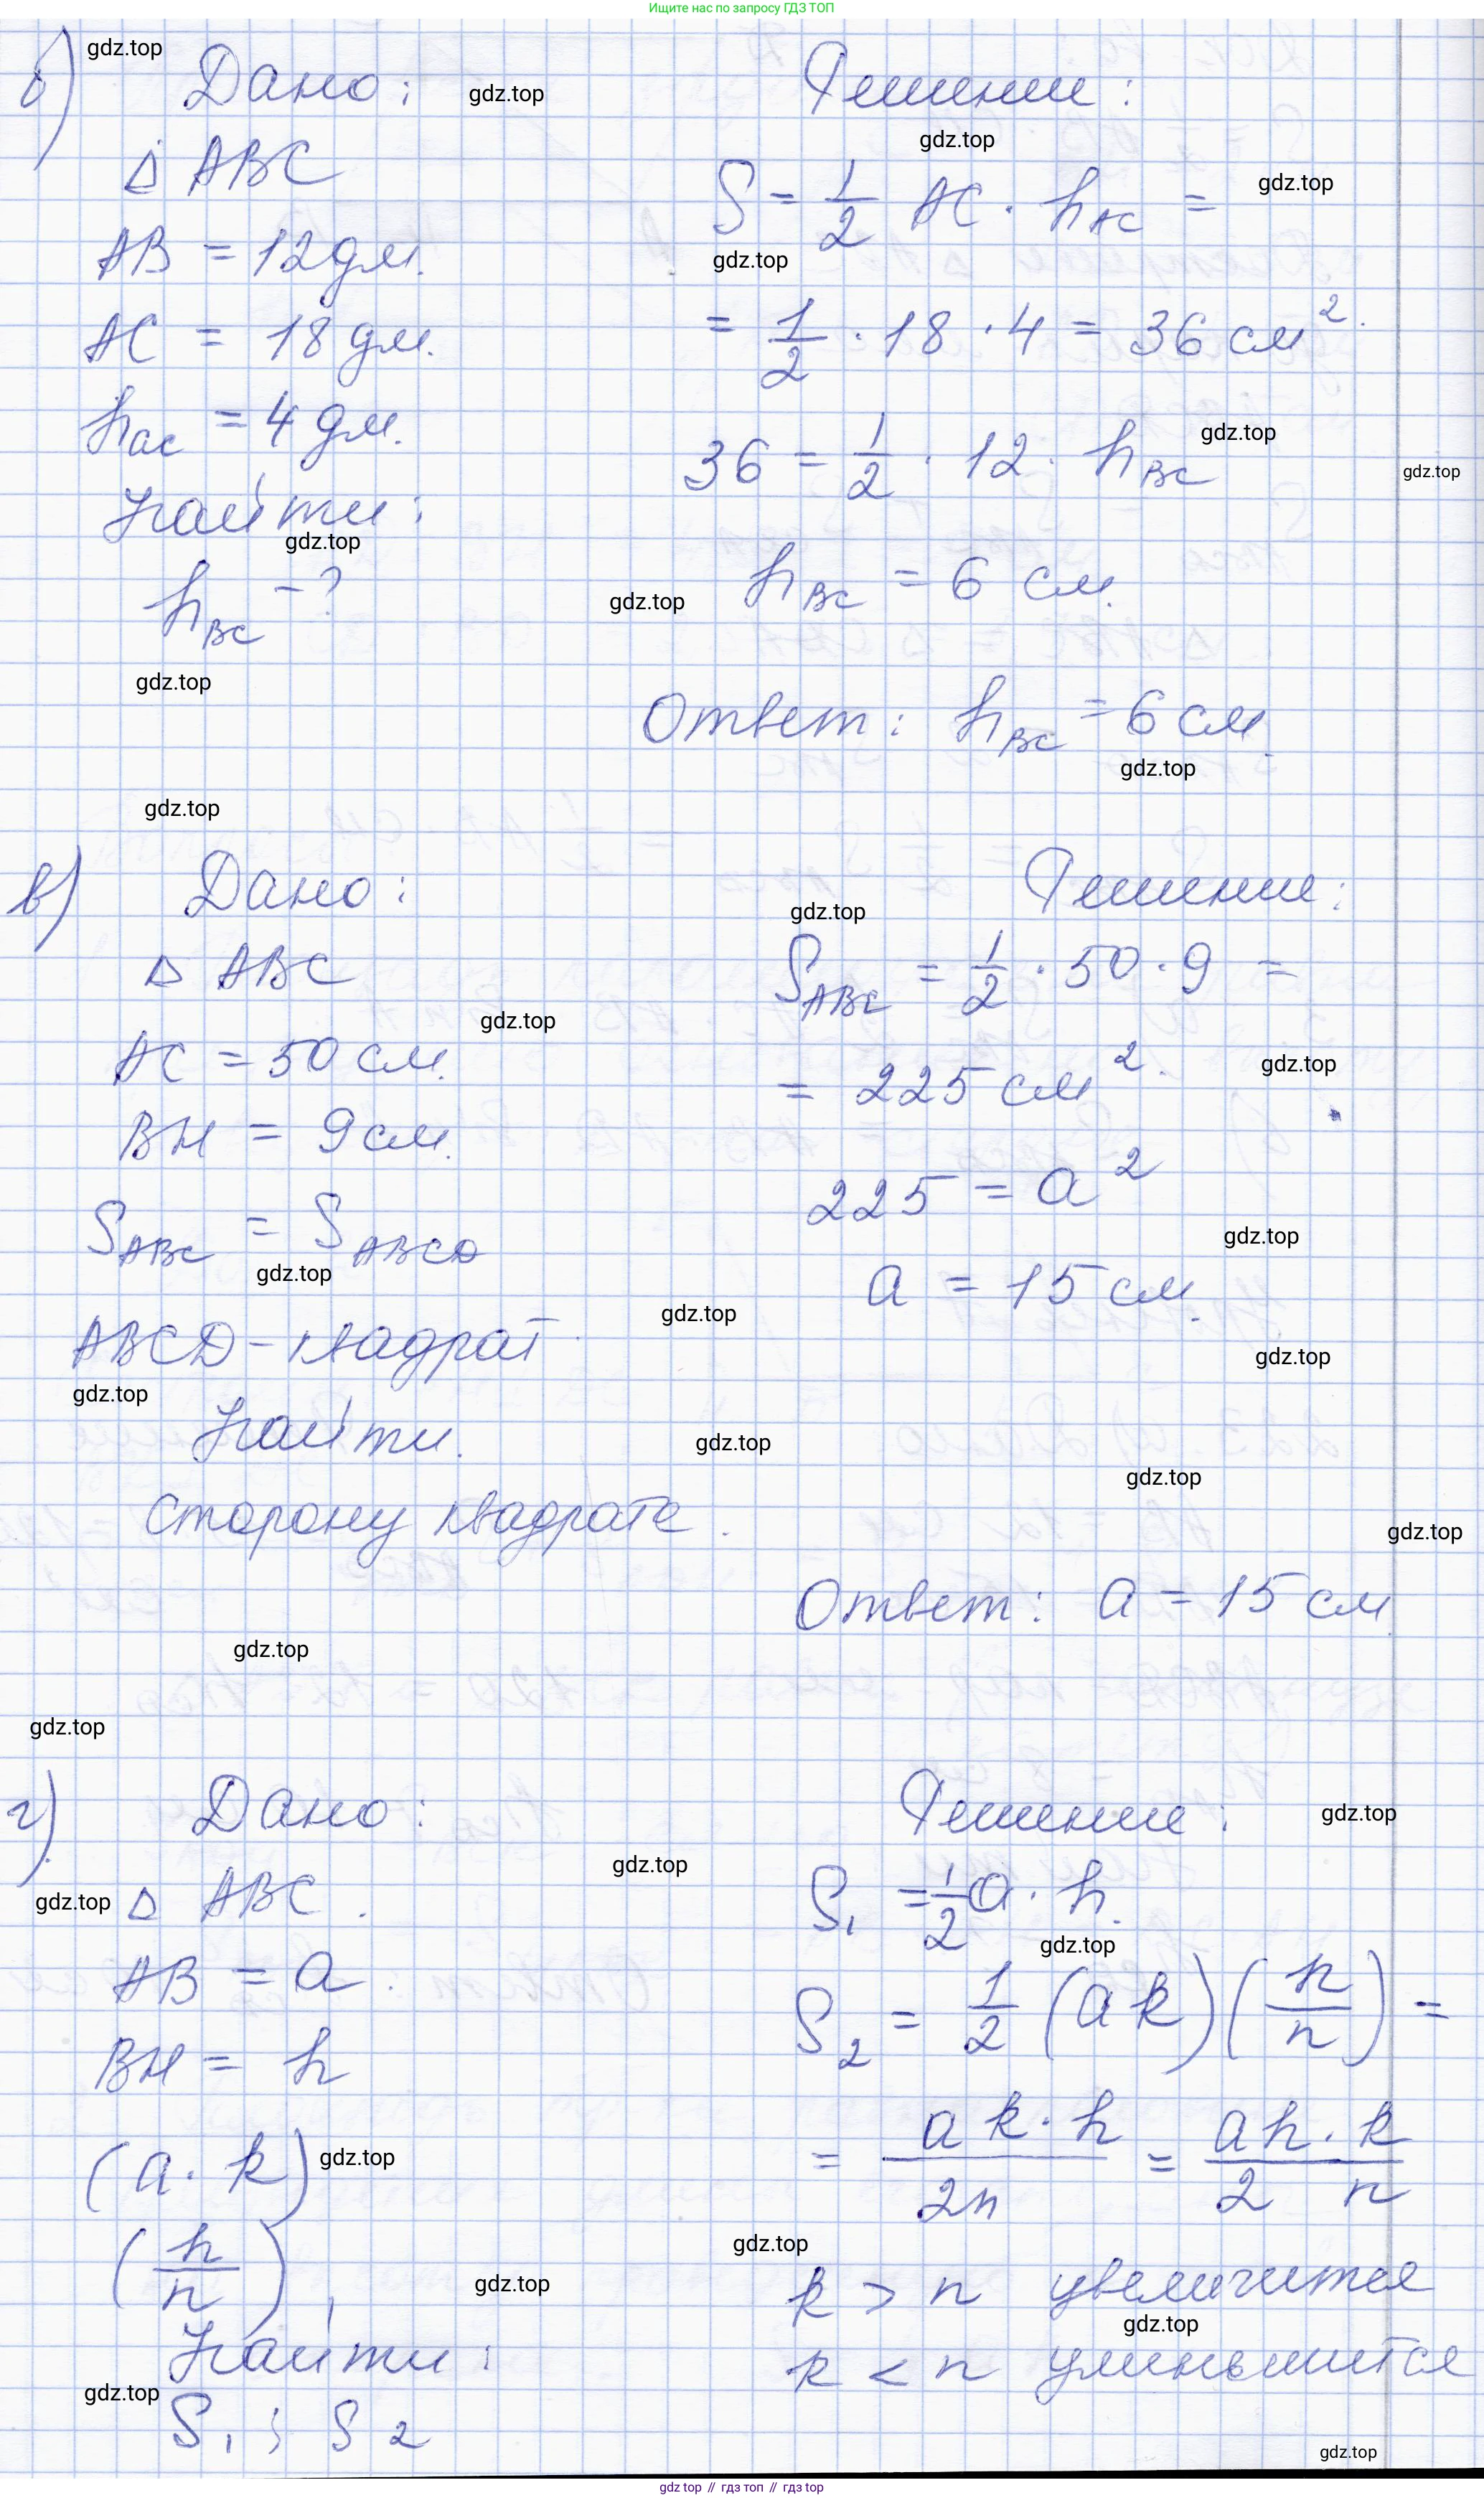 Ищите нас по запросу ГДЗ ТОП
б) Дано:
Δ ABC
AB = 12 дм.
AC = 18 дм.
h_ac = 4 дм.
Найти:
h_BC - ?
Решение:
S = 1/2 AC · h_AC =
= 1/2 · 18 · 4 = 36 см².
36 = 1/2 · 12 · h_BC
h_BC = 6 см.
Ответ: h_BC = 6 см.
в) Дано:
Δ ABC
AC = 50 см.
BH = 9 см.
S_ABC = S_ABCD
ABCD - квадрат
Найти.
сторону квадрата.
Решение:
S_ABC = 1/2 · 50 · 9 =
= 225 см².
225 = a²
a = 15 см.
Ответ: a = 15 см.
г) Дано:
Δ ABC.
AB = a.
BH = h
(a · k)
(h/n),
Найти:
S₁; S₂
Решение:
S₁ = 1/2 a · h.
S₂ = 1/2 (ak)(h/n) =
= ak · h/2n = ah · k/2 n
k > n увеличится
k < n уменьшится
gdz.top
gdz top // гдз топ // гдз top